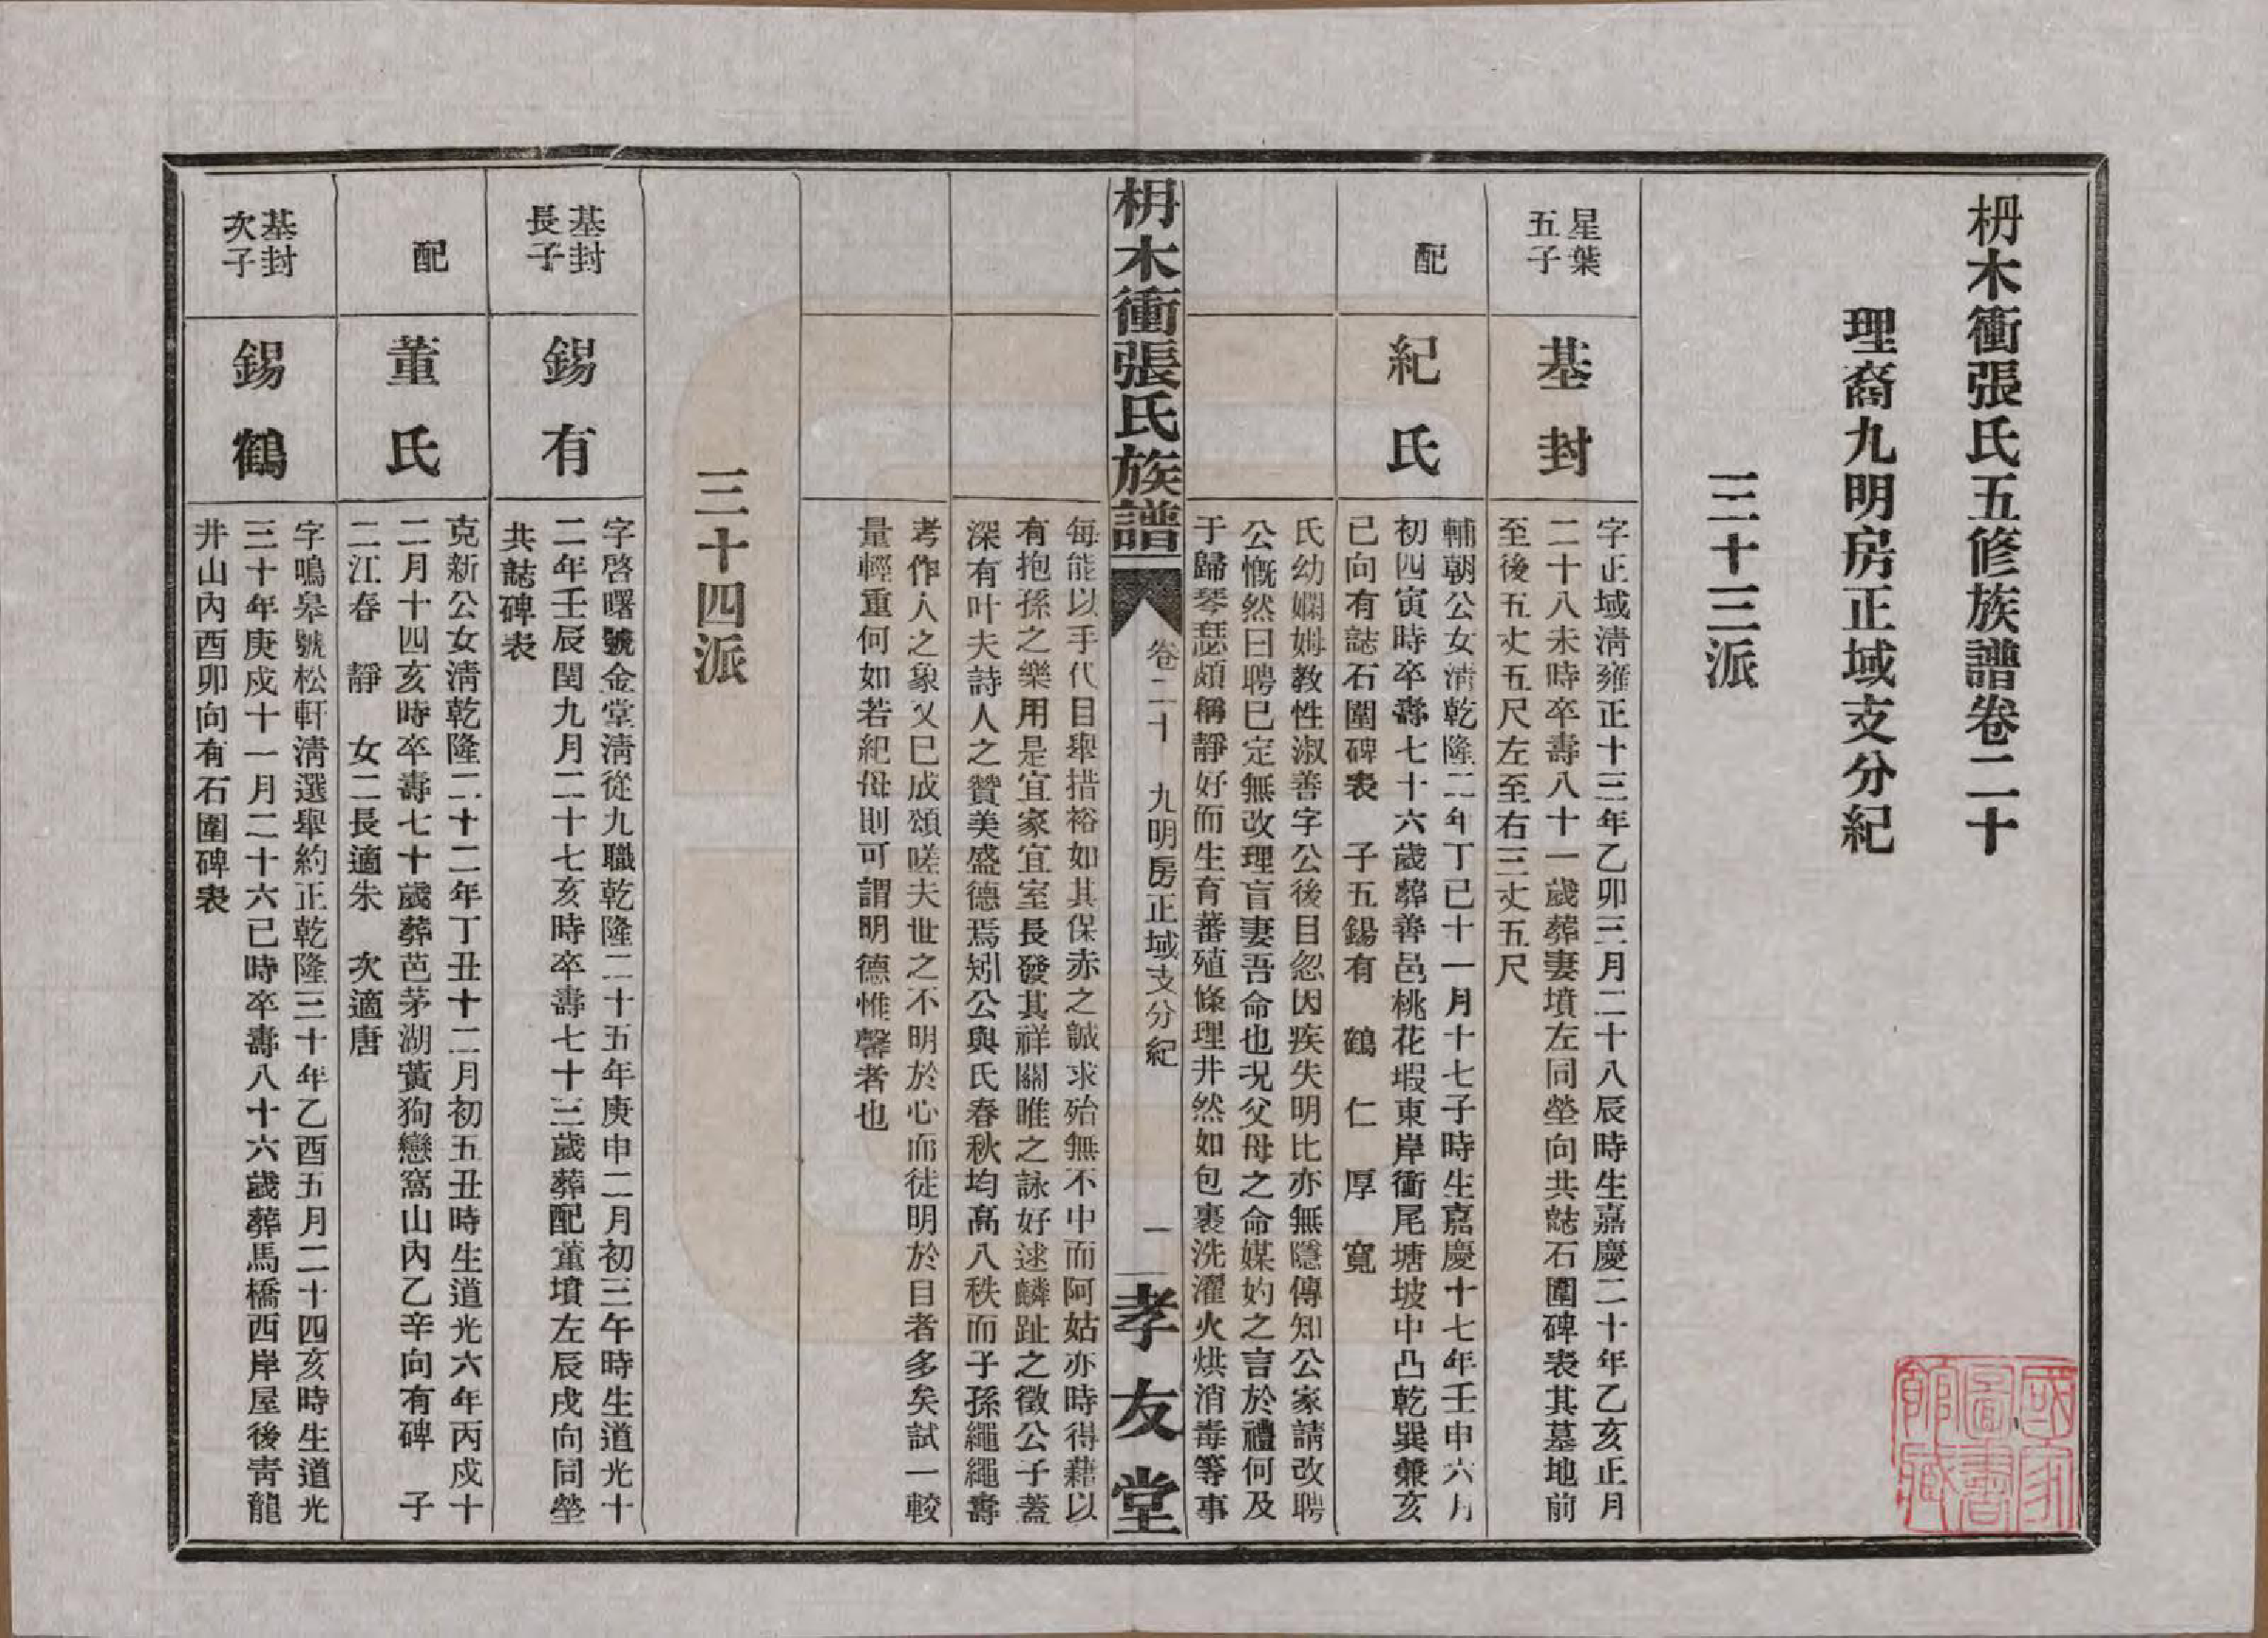 枬木衝張氏五修族譜卷二十
理裔九明房正域支分紀
三十三派
星葉
五子
基封
字正域淸雍正十三年乙卯三月二十八辰時生嘉慶二十年乙亥正月
二十八未時卒壽八十一歲葬妻墳左同塋向共誌石圍碑表其墓地前
至後五丈五尺左至右三丈五尺
配
紀氏
輔朝公女淸乾隆二年丁巳十一月十七子時生嘉慶十七年壬申六月
初四寅時卒壽七十六歲葬善邑桃花塅東岸衝尾塘坡中凸乾巽兼亥
巳向有誌石圍碑表 子五錫有 鶴 仁 厚 寬
氏幼嫻姆教性淑善字公後目忽因疾失明比亦無隱傳知公家請改聘
公慨然曰聘已定無改理盲妻吾命也況父母之命媒妁之言於禮何及
于歸琴瑟頗稱靜好而生育蕃殖條理井然如包裹洗濯火烘消毒等事
枬木衝張氏族譜
卷二十 九明房正域支分紀
一
孝友堂
每能以手代目舉措裕如其保赤之誠求殆無不中而阿姑亦時得藉以
有抱孫之樂用是宜家宜室長發其祥關雎之詠好逑麟趾之徵公子蓋
深有叶夫詩人之贊美盛德焉矧公與氏春秋均高八秩而子孫繩繩壽
考作人之象又已成頌嗟夫世之不明於心而徒明於目者多矣試一較
量輕重何如若紀母則可謂明德惟馨者也
三十四派
基封
長子
錫有
字啓曙號金堂淸從九職乾隆二十五年庚申二月初三午時生道光十
二年壬辰閏九月二十七亥時卒壽七十三歲葬配董墳左辰戌向同塋
共誌碑表
配
董氏
克新公女淸乾隆二十二年丁丑十二月初五丑時生道光六年丙戌十
二月十四亥時卒壽七十歲葬芭茅湖黃狗戀窩山內乙辛向有碑 子
二江春 靜 女二長適朱 次適唐
基封
次子
錫鶴
字鳴皋號松軒淸選舉約正乾隆三十年乙酉五月二十四亥時生道光
三十年庚戌十一月二十六巳時卒壽八十六歲葬馬橋西岸屋後靑龍
井山內酉卯向有石圍碑表
國家
圖書
館藏